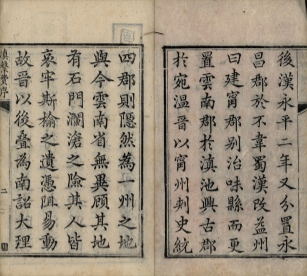 後漢永平二年又分置永
昌郡於不韋蜀漢改益州
曰建甯郡別治味縣而更
置雲南郡於滇池興古郡
於宛溫晉以甯州刺史統
四郡則隱然為一州之地
與今雲南省無異顧其地
有石門瀾滄之險其人皆
哀牢斯榆之遺憑阻易動
故晉以後叠為南詔大理
序
二